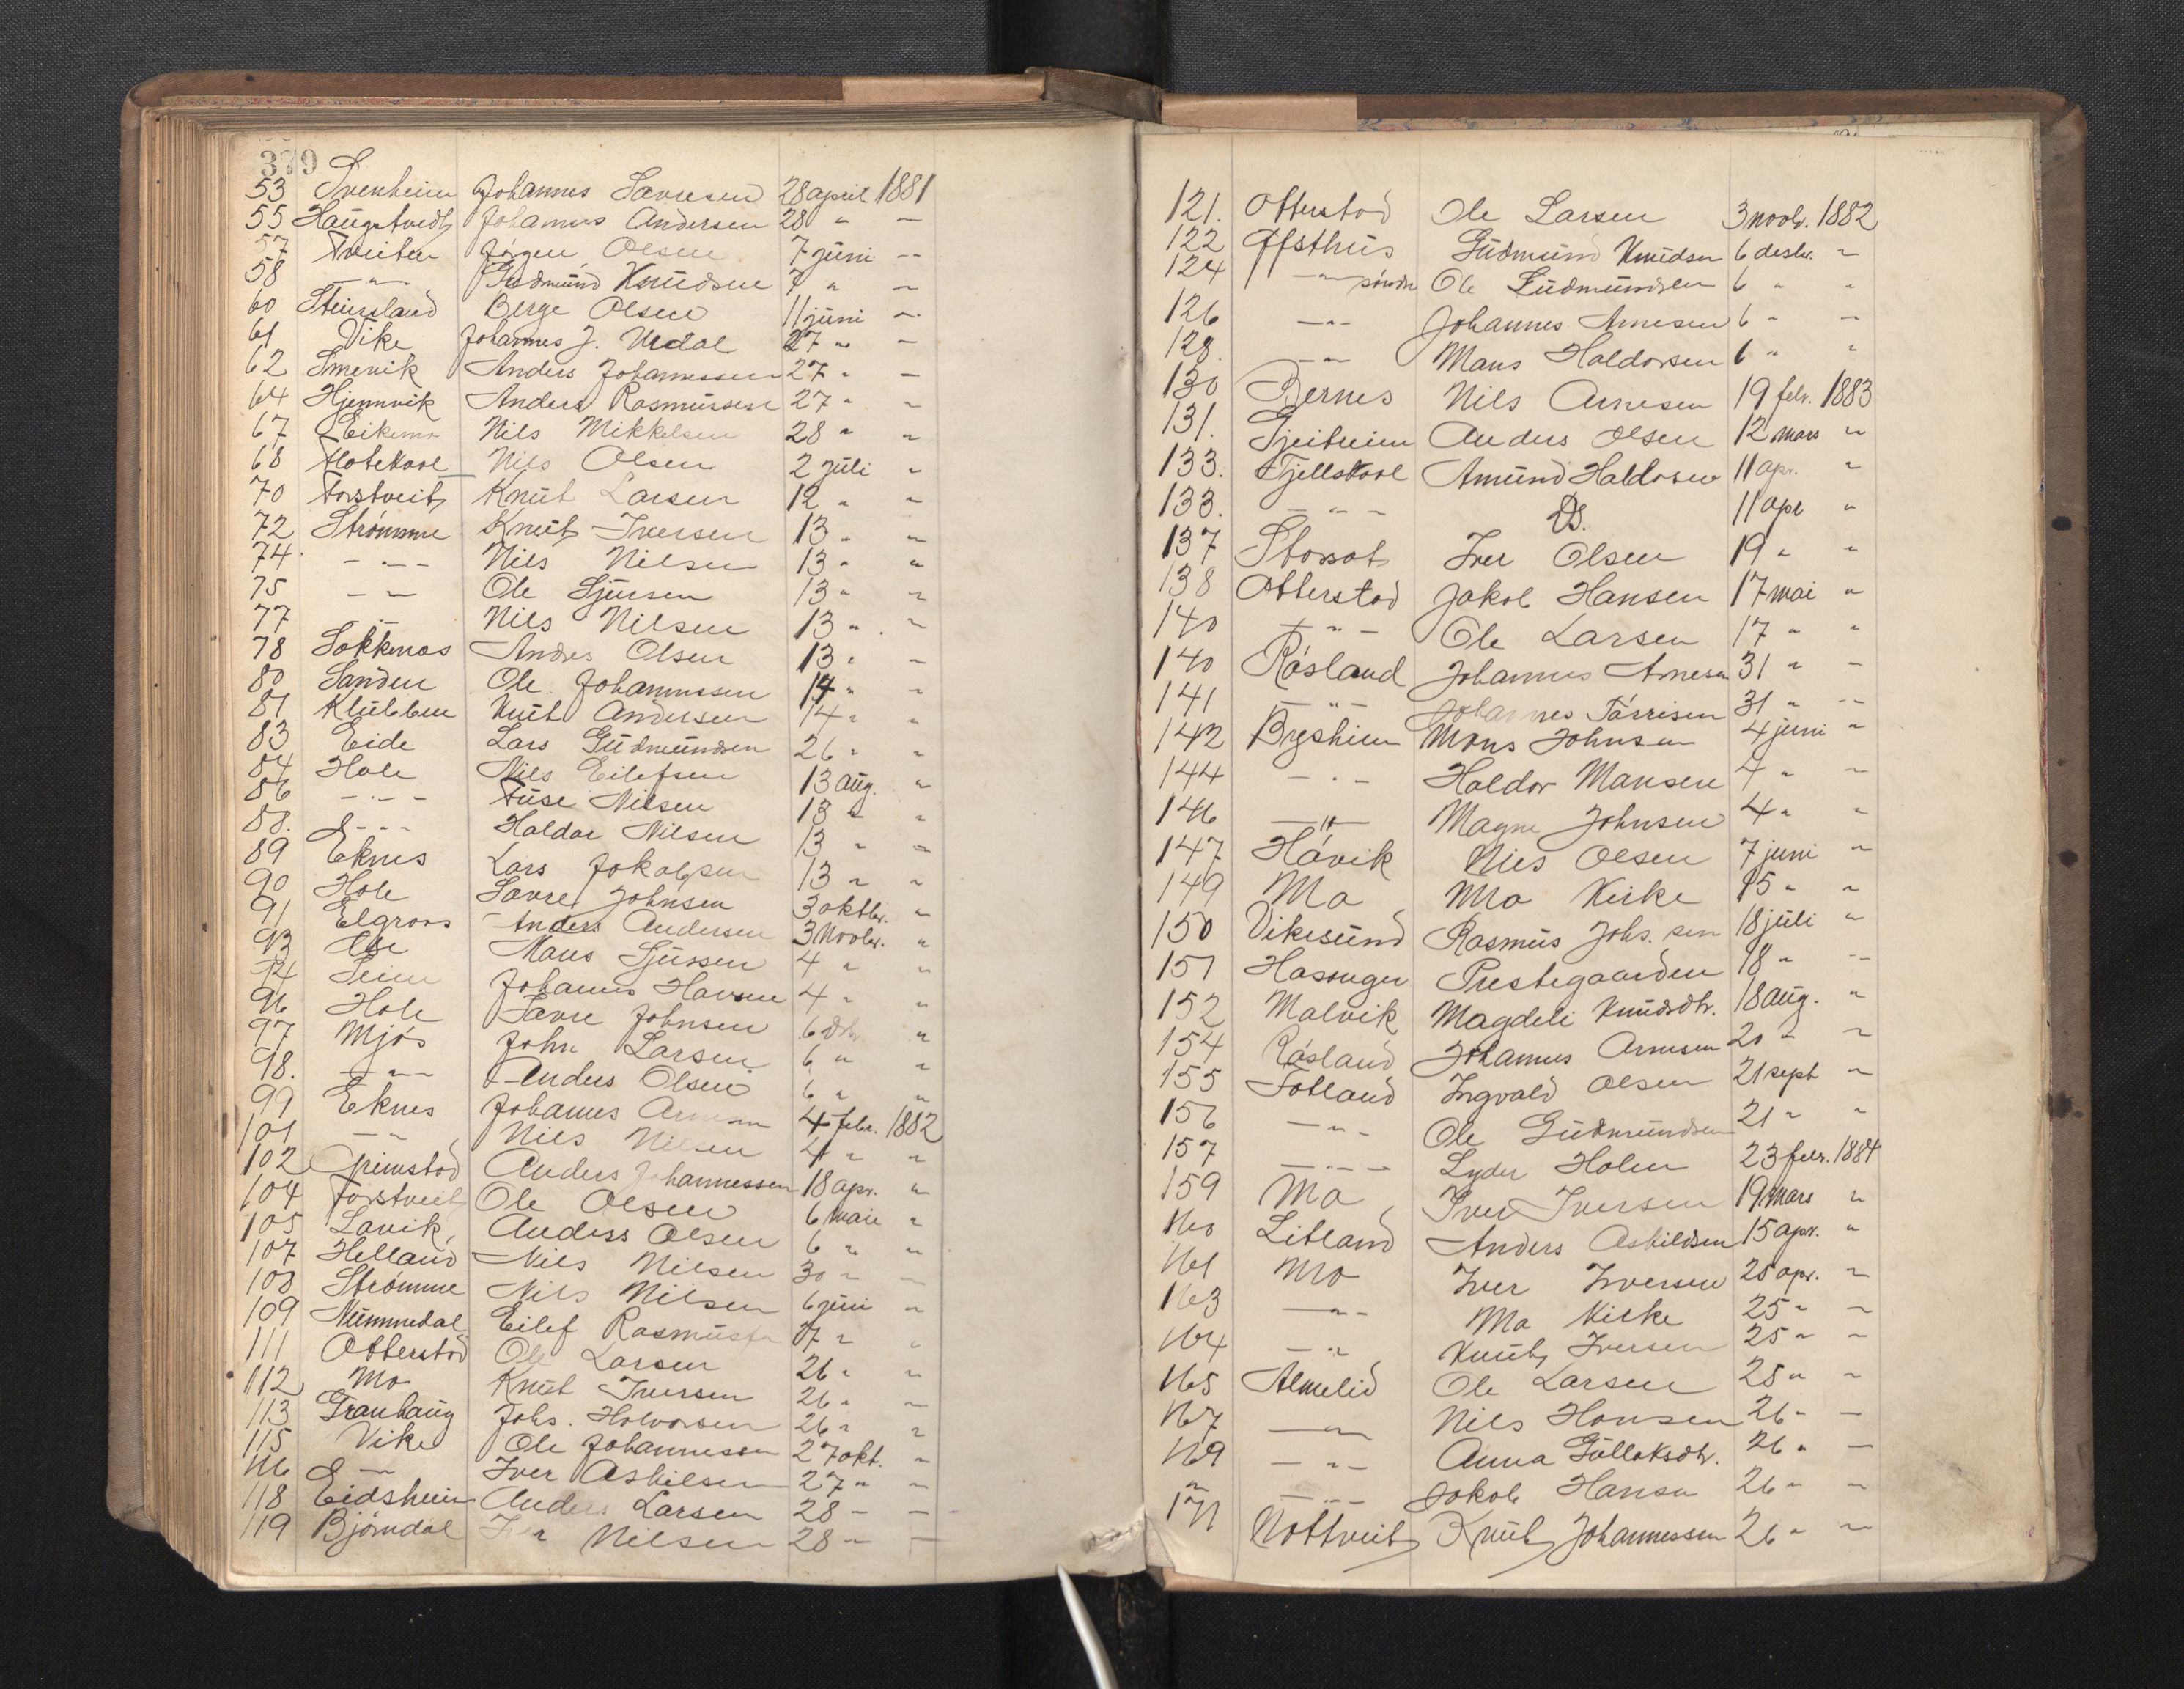 379
53 Svenheim Johannes Savresen 28 april 1881
55 Haugstvedt Johannes Andersen 28 " —
57 Tveiten Jørgen Olsen 7 juni —
58 — " — Gudmund Knudsen 7 " —
60 Steinsland Berge Olsen 11 juni —
61 Vike Johannes J. Urdal 27 " —
62 Smevik Anders Johannessen 27 " —
64 Hjemvik Anders Rasmussen 27 " "
67 Eikemo Nils Mikkelsen 28 " "
68 Flotekval Nils Olsen 2 juli "
70 Forstveit Knut Larsen 12 " "
72 Strømme Knut Iversen 13 " "
74 — " — Nils Nilsen 13 " "
75 — " — Ole Sjursen 13 " "
77 — Nils Nilsen 13 " "
78 Søkkenes Andres Olsen 13 " —
80 Sanden Ole Johannessen 14 " "
81 Klubben Knut Andersen 14 " "
83 Eide Lars Gudmundsen 26 " "
84 Hole Nils Eilefsen 13 aug. "
86 — " — Fuse Nilsen 13 " "
88. — " — Haldor Nilsen 13 " "
89 Eknes Lars Jakobsen 13 " "
90 Hole Savre Johnsen 3 oktbr. "
91 Elgroos Anders Andersen 3 Novbr. "
93 Mans Sjursen 4 " "
94 Johannes Hansen 4 " "
96 Hole Savre Johnsen 6 "
97 Mjøs John Larsen 6 " "
98. — " — Anders Olsen 6 " "
99 Eknes Johannes Arnesen 4 febr. 1882
101 — " — Nils Nilsen 4 " "
102 Grimstad Anders Johannessen 18 apr. "
104 Forstveit Ole Olsen 6 maii "
105 Lavik Anders Olsen 6 " "
107 Helland Nils Nilsen 30 " —
108 Strømme Nils Nilsen 6 juni "
109 Nummedal Eilef Rasmussen 7 " "
111 Otterstad Ole Larsen 26 " "
112 Mo Knut Iversen 26 " "
113 Granhaug Johs. Halvorsen 26 " "
115 Vike Ole Johannessen 27 okt. "
116 — " — Iver Askilsen 27 " "
118 Eidsheim Anders Larsen 28 — —
119 Bjørndal Iver Nilsen 28 " —
121. Otterstad Ole Larsen 3 novb. 1882
122 Øfsthus Gudmund Knudsen 6 desbr. "
124 — " — søndre Ole Gudmundsen 6 " "
126 — " — Johannes Arnesen 6 " —
128. — " — Mans Haldorsen 6 " "
130 Bernes Nils Arnesen 19 febr. 1883
131. Gjeitheim Anders Olsen 12 mars "
133. Fjellskaal Amund Haldorsen 11 apr. "
133. — " — Ds. 11 apr "
137 Storset Iver Olsen 19 " "
138 Otterstad Jakob Hansen 17 mai "
140 — " — Ole Larsen 17 " "
140 Røsland Johannes Arnesen 31 " —
141 — " — Johannes Tørrisen 31 " —
142 Bysheim Mons Johnsen 4 juni "
144 — " — Haldor Mansen 4 " "
146 — " — Magne Johnsen 4 " "
147 Håvik Nils Olsen 7 juni "
149 Mo Mo Kirke 15 " "
150 Vikesund Rasmus Johs.sen 18 juli "
151 Hasanger Prestegaarden 18 " —
152 Malvik Magdeli Knudsdtr. 18 aug. "
154 Røsland Johannes Arnesen 20 " "
155 Fotland Ingvald Olsen 21 sept "
156 — " — Ole Gudmundsen 21 " "
157 — " — Lyder Holm 23 febr. 1884
159 Mo Iver Iversen 19 mars "
160 Litland Anders Askildsen 15 apr. "
161 Mo Iver Iversen 25 apr. "
163 — " — Mo Kirke 25 " —
164 — " — Knut Iversen 25 " —
165 Almelid Ole Larsen 25 " "
167 — " — Nils Hansen 26 " —
169 — " — Anna Gullaksdtr. 26 " —
" — " — Jakob Hansen 26 " —
171 Nottveit Knut Johannessen 26 " "